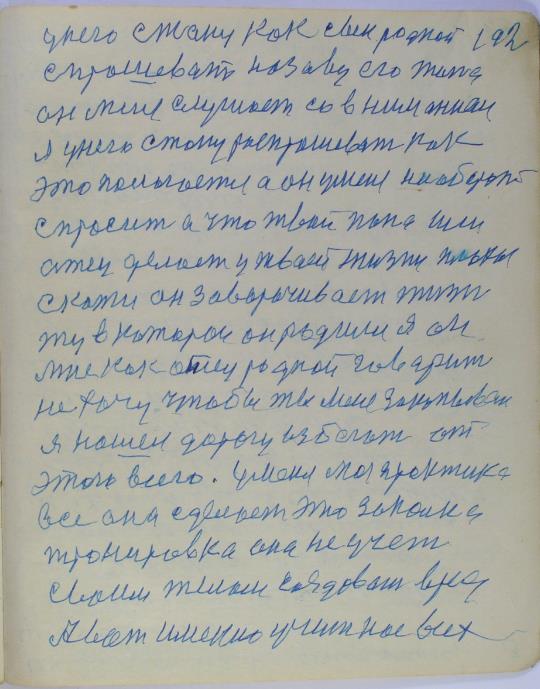 унего стану как свек родной 192
спрошевать назаву его тата
он меня слушает со вниманиям
я унего стану роспрошеват как
это пологается а он умен наоборот
спросит а что твой папа или
отец делает у твоей жизни
скажи он заворачивает
ту в которои он родился я он
мне как отец родной говарит
не хочу чтобы ты мене закапывал
я нашел дорогу избегат от
этого всего. умена моя практика
все она сделает это закалка
трнировка она не учет
своим телом создоват вред
А вот именно учит нас всех